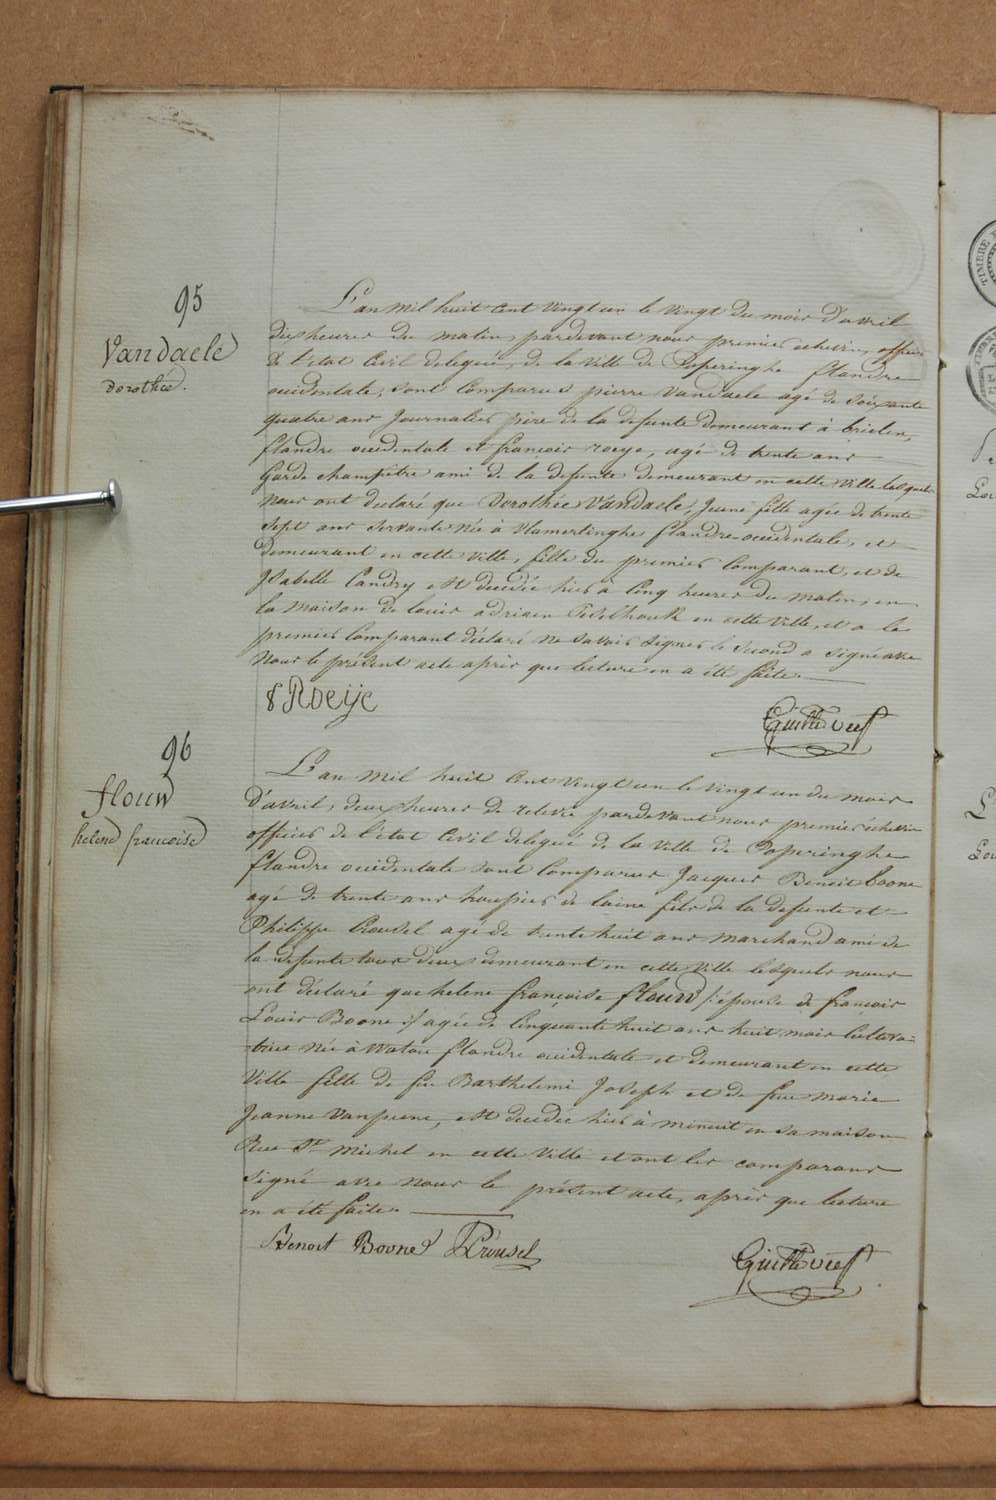 95
Vandaele
Dorothée.
L'an mil huit cent vingt un le vingt du mois d'avril
dix heures du matin, pardevant nous premier échevin, officier
de l'état civil delegué, de la ville de Poperinghe flandre
occidentale, sont comparus pierre Vandaele agé de soixante
quatre ans journalier père de la defunte demeurant à brielen,
flandre occidentale et françois roeye, agé de trente ans
Garde champêtre ami de la defunte demeurant en cette ville lesquels
nous ont declaré que Dorothée Vandaele, jeune fille agée de trente
sept ans servante née à Vlamertinghe flandre-occidentale, et
demeurant en cette ville, fille du premier comparant, et de
Isabelle Candry est decedée hier à cinq heures du matin, en
la maison de louis adrien en cette ville, et a le
premier comparant déclaré ne savoir signer le second a signé avec
nous le présent acte après que lecture en a été faite.
Roeije
96
flouw
helene francoise
L'an mil huit cent vingt un le vingt un du mois
d'avril, deux heures de relevée pardevant nous premier échevin
officier de l'état civil delegué de la ville de Poperinghe
flandre occidentale sont comparus Jacques Benoit Boone
agé de trente ans houpier de laine fils de la defunte et
Philippe Prousel agé de trente huit ans marchand ami de
la defunte tous deux demeurant en cette ville lesquels nous
ont déclaré que helene françoise flouw épouse de françois
Louis Boone agée de cinquante huit ans huit mois cultiva-
-trice née à Watou flandre occidentale et demeurant en cette
Ville fille de feu Barthelemi Joseph et de feue marie
Jeanne est decedée hier à minuit en sa maison
Rue St michel en cette Ville et ont les comparans
signé avec nous le présent acte, après que lecture
en a été faite.
Benoit Boone Prousel
TIMBRE